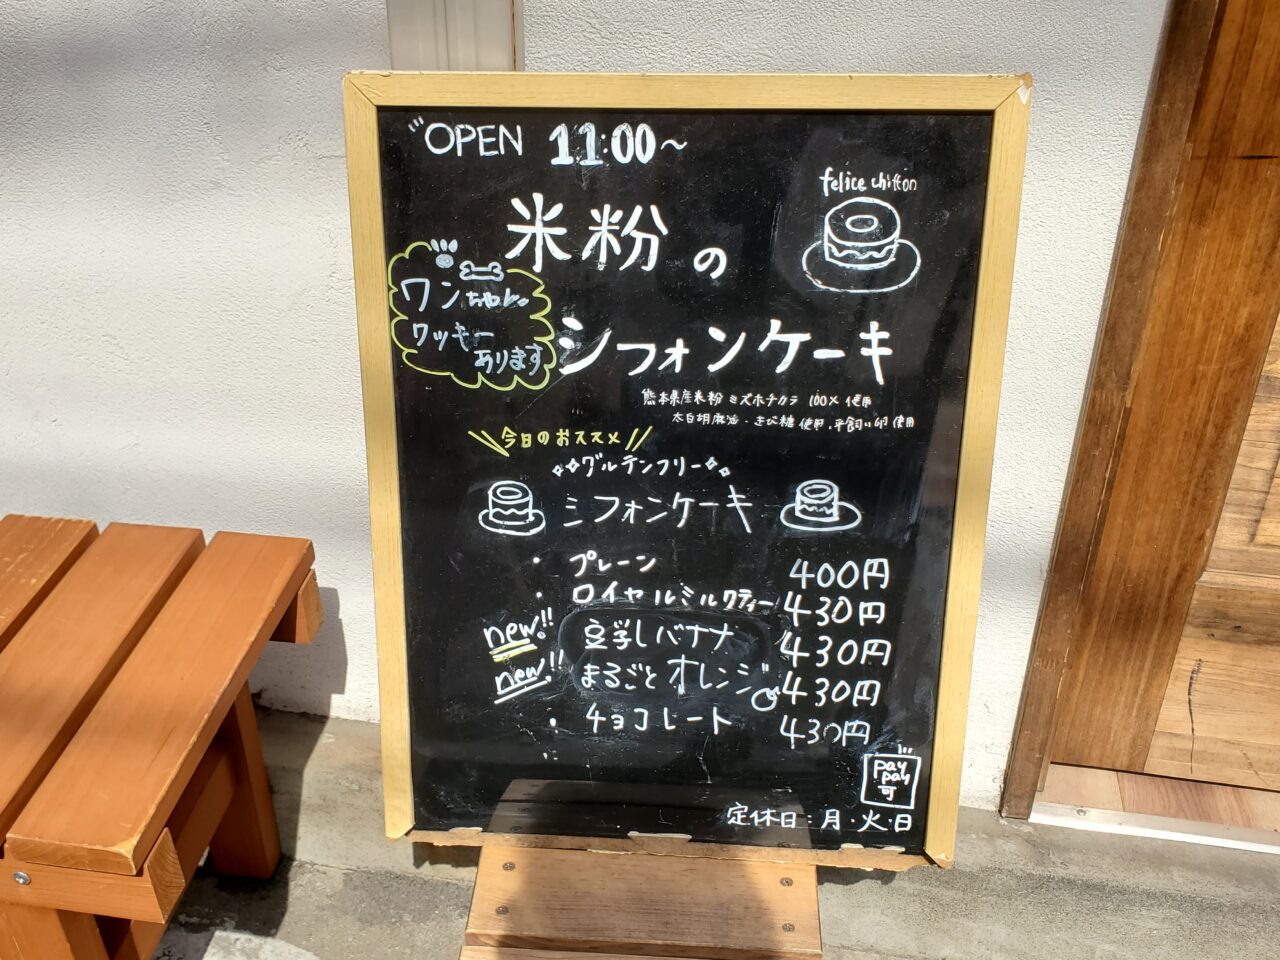 OPEN 11:00～
felice chiffon
米粉の
ワンちゃんの
クッキー
あります
シフォンケーキ
熊本県産米粉 ミズホチカラ 100% 使用
太白胡麻油・きび糖使用、平飼い卵使用
今日のおススメ
グルテンフリー
シフォンケーキ
・ プレーン 400円
・ ロイヤルミルクティー 430円
new!! 豆乳バナナ 430円
new!! まるごとオレンジ 430円
・ チョコレート 430円
pay
pay
可
定休日：月・火・日